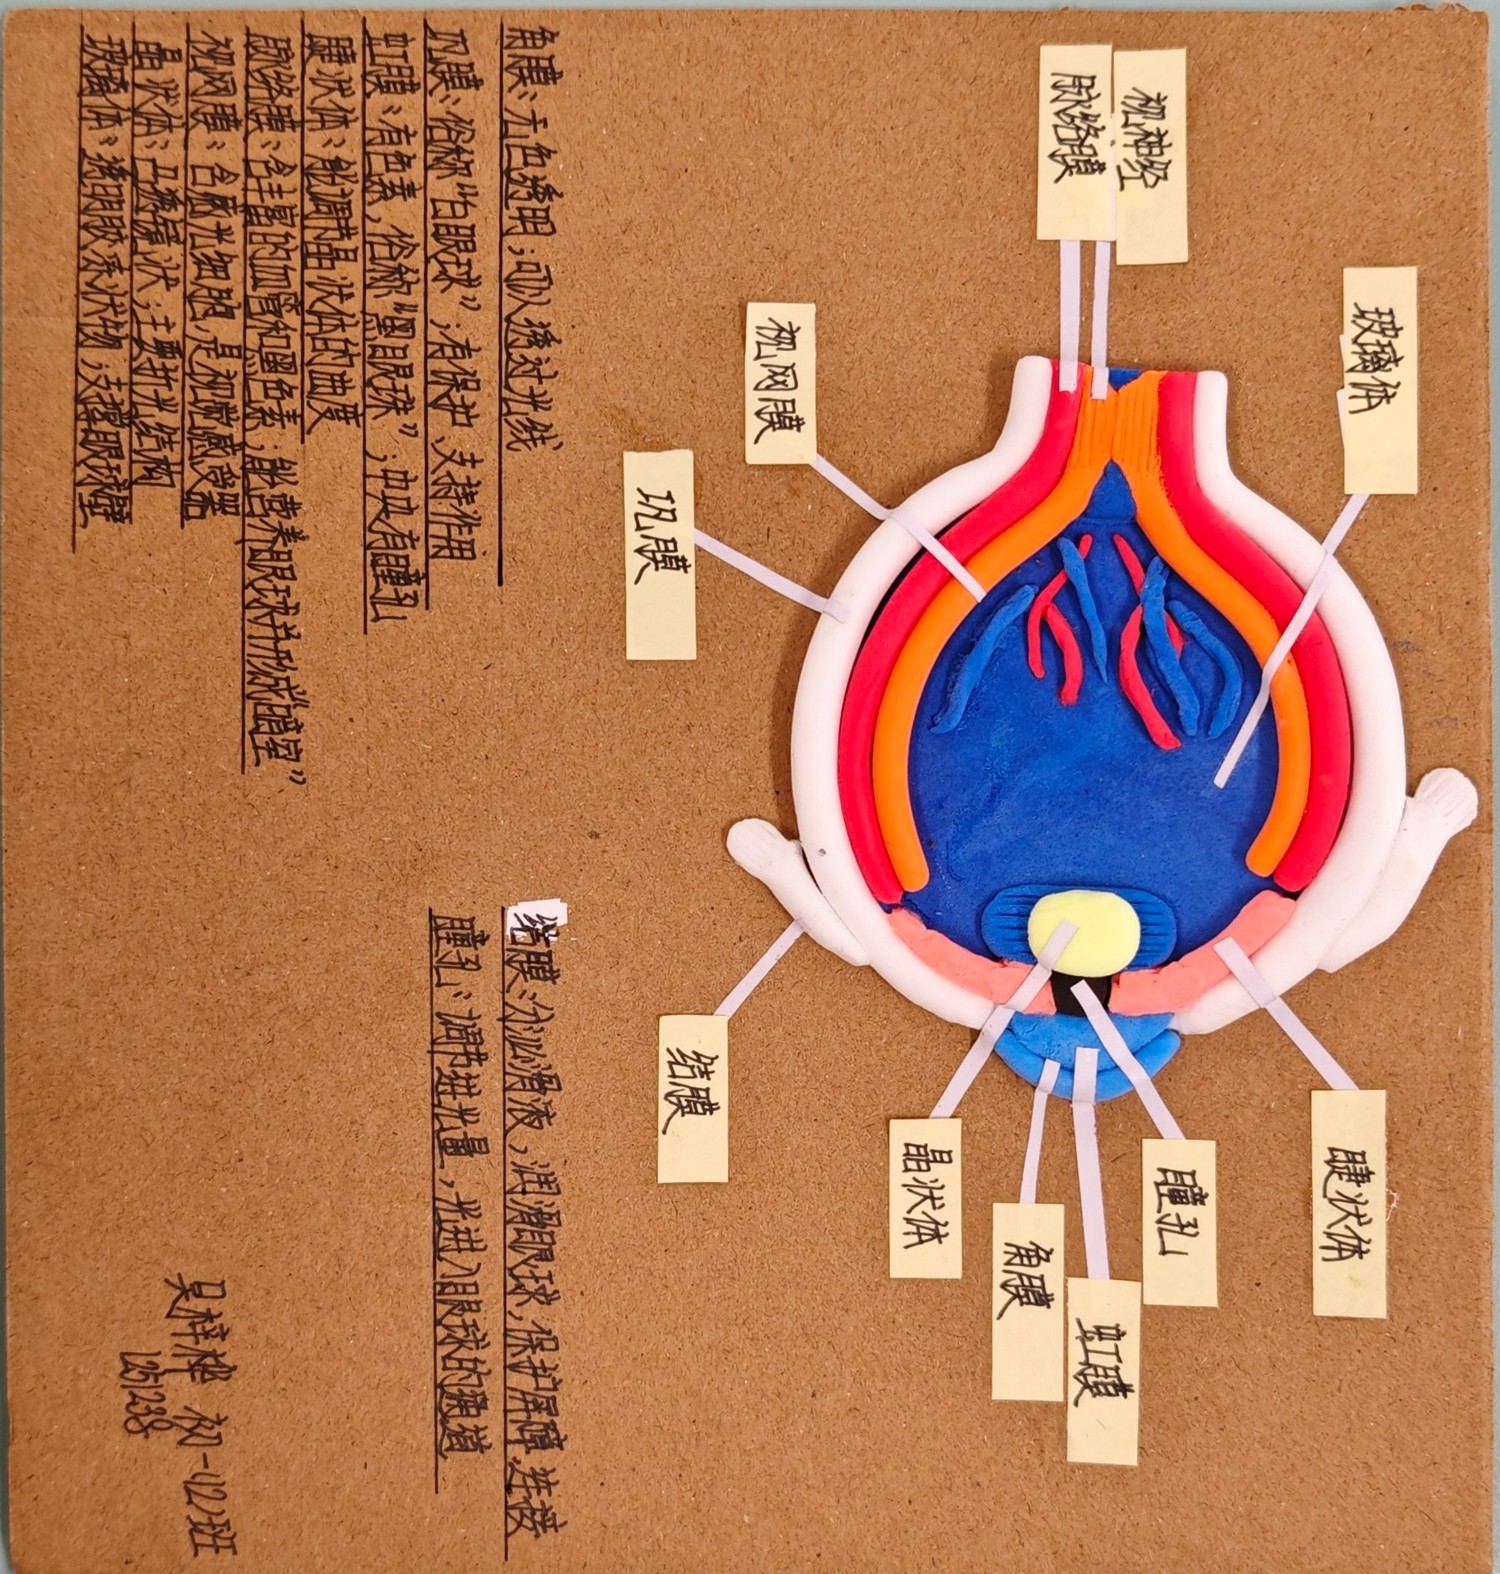 视神经
脉络膜
玻璃体
视网膜
巩膜
结膜
晶状体
角膜
虹膜
瞳孔
睫状体
角膜：无色透明；可以透过光线
巩膜：俗称“白眼球”；有保护、支持作用
虹膜：有色素，俗称“黑眼珠”；中央有瞳孔
睫状体：能调节晶状体的曲度
脉络膜：含丰富的血管和黑色素；能营养眼球并形成“暗室”
视网膜：含感光细胞，是视觉感受器
晶状体：凸透镜状；主要折光结构
玻璃体：透明胶系状物；支撑眼球壁
结膜：分泌滑液，润滑眼球，保护屏障，连接
瞳孔：调节进光量，光进入眼球的通道
吴梓 初一(12)班
1251238